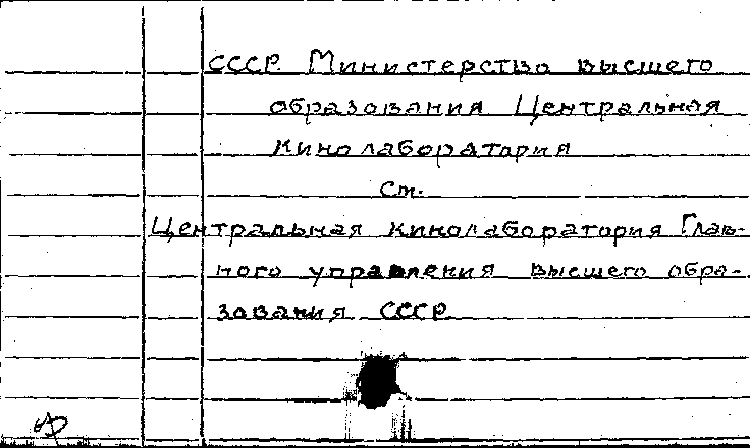 СССР. Министерство высшего
образования Центральная
кинолаборатория
см.
Центральная кинолаборатория Глав-
ного управления высшего обра-
зования СССР